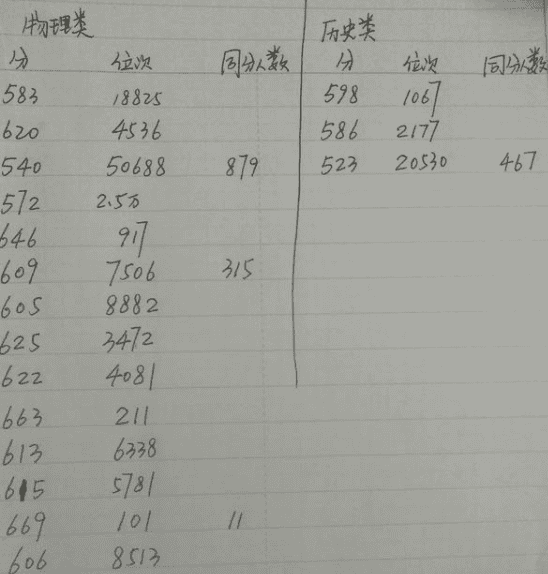 物理类 历史类
分 位次 同分人数 分 位次 同分人数
583 18825 598 1067
620 4536 586 2177
540 50688 879 523 20530 467
572 2.5万
646 917
609 7506 315
605 8882
625 3472
622 4081
663 211
613 6338
615 5781
669 101 11
606 8513